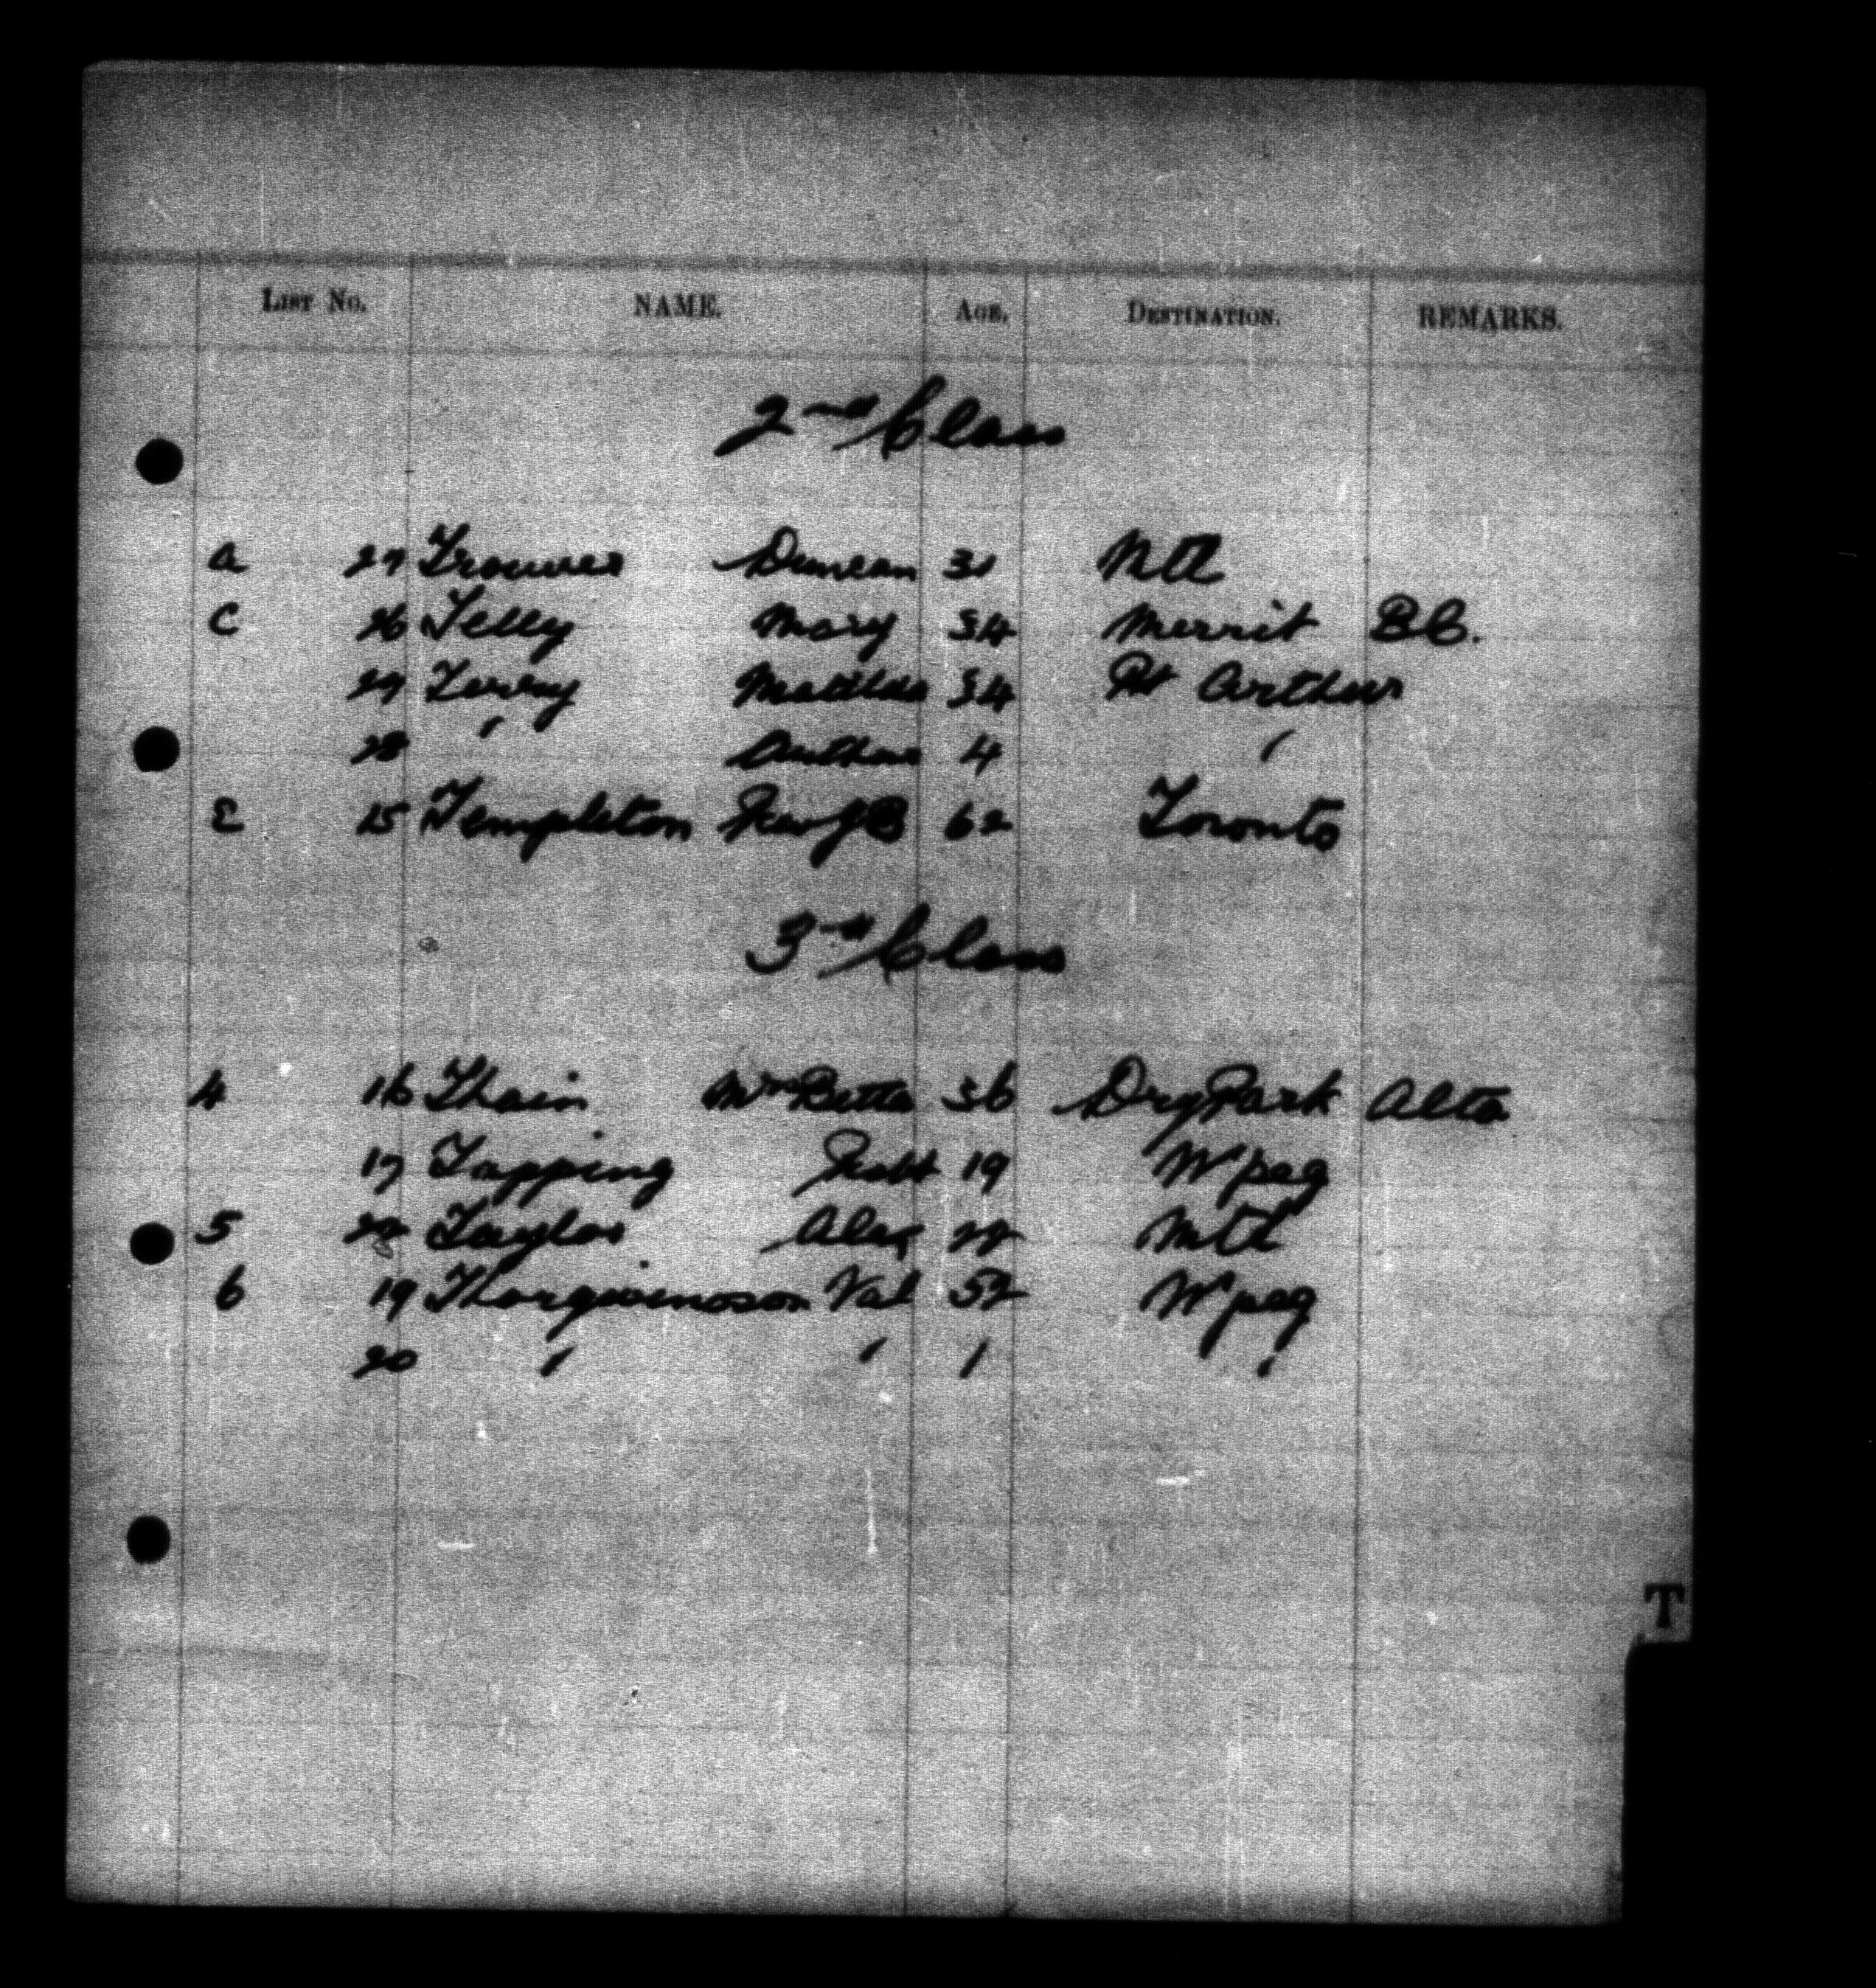 LIST NO. NAME. AGE. DESTINATION. REMARKS.
2nd Class
a 27 Duncan 31 Mtl
C 26 Telly Mary 34 Merrit BC.
27 Terry Matilda 34 Pt Arthur
28 " Arthur 4 "
E 15 Templeton Rev J B 62 Toronto
3rd Class
4 16 Thain Mrs Betta 36 Dry Park Alta
17 Tapping Robt 19 W'peg
5 Taylor Alex 22 Mtl
6 19 Val 52 W'peg
20 " " 1 "
T